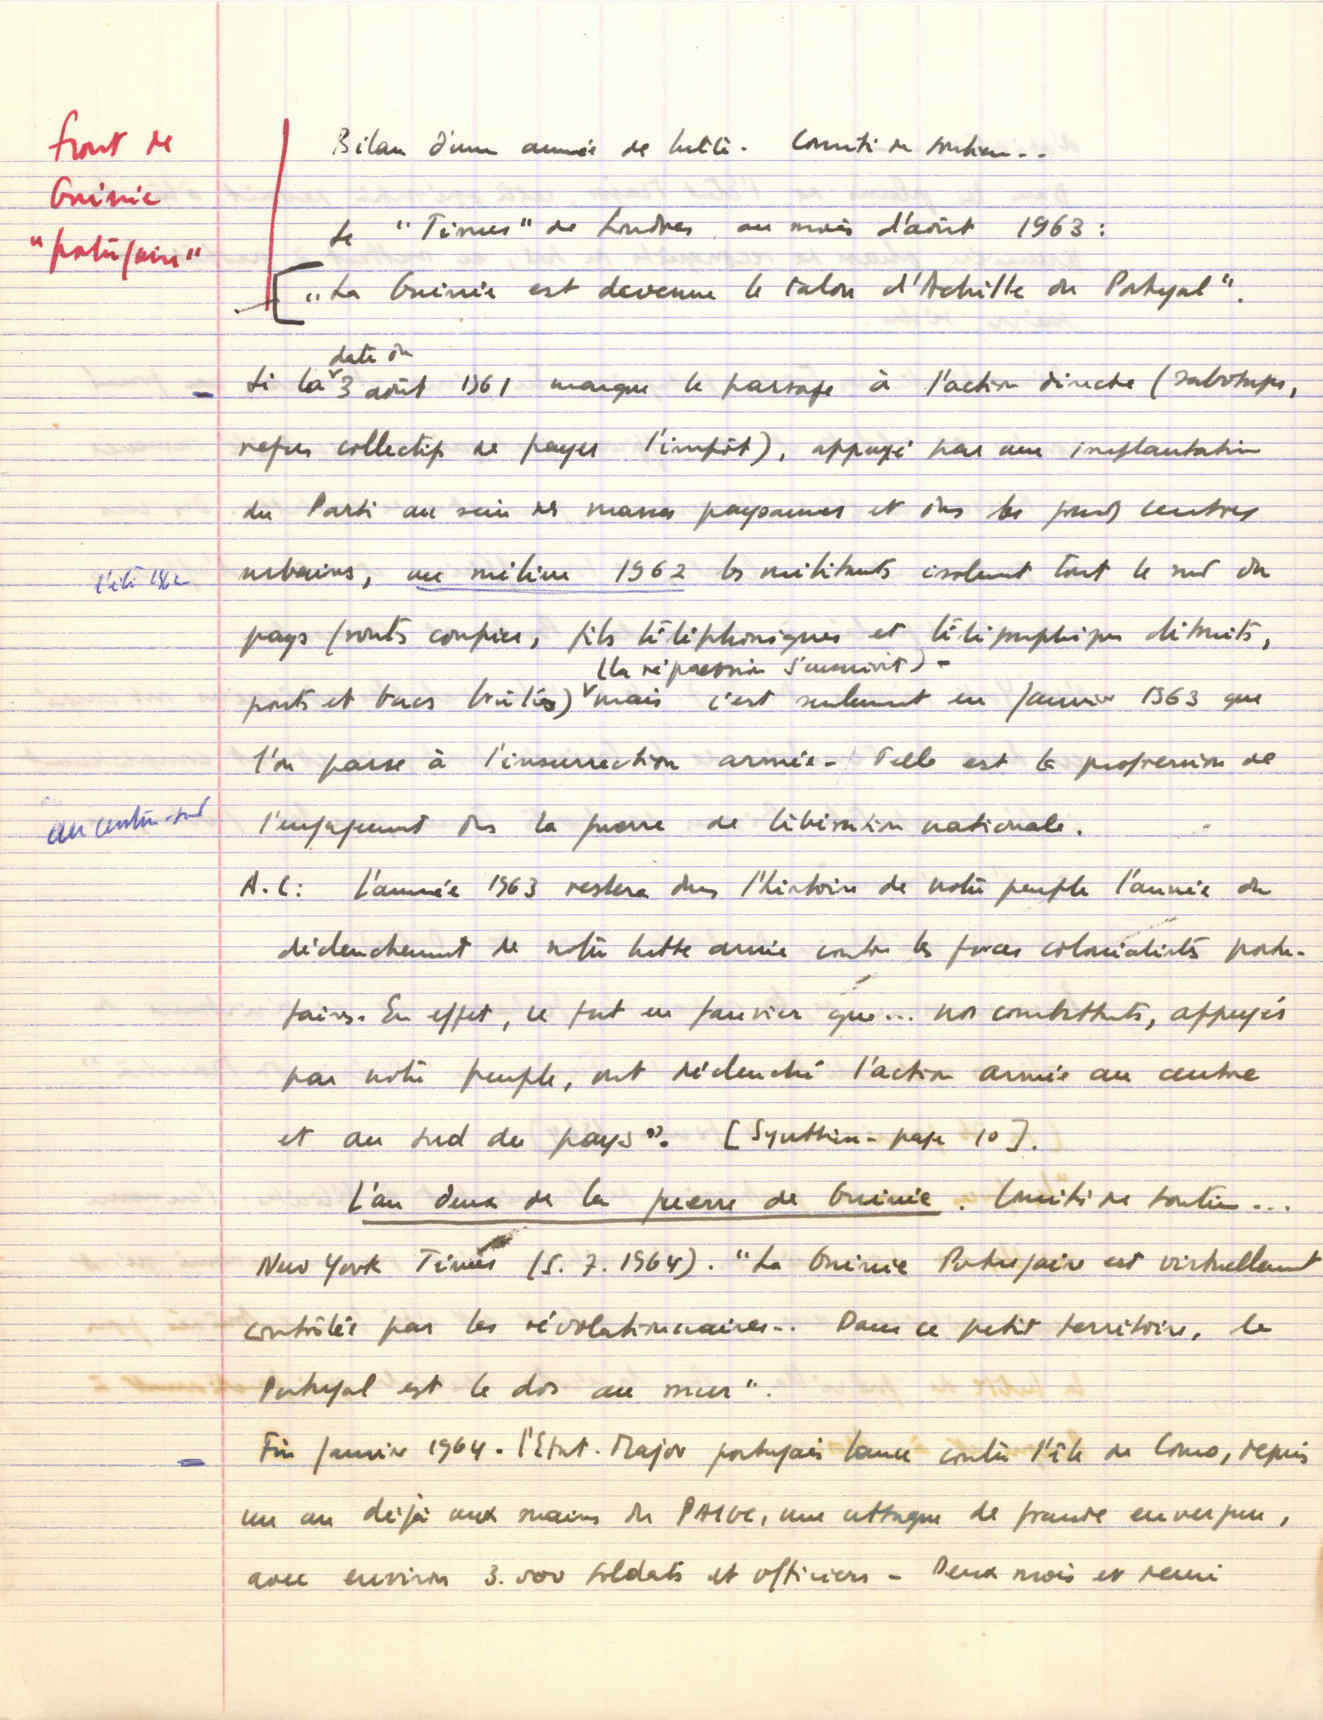 front de
Guinée
"portugaise"
Bilan d'une année de lutte. Comité de soutien..
Le "Times" de Londres au mois d'août 1963 :
"La Guinée est devenue le talon d'Achille du Portugal".
date du
Si la 3 août 1961 marque le passage à l'action directe (sabotages,
refus collectifs de payer l'impôt), appuyé par une implantation
du Parti au sein des masses paysannes et dans les grands centres
l'été 1962
urbains, au milieu 1962 les militants isolent tout le sud du
pays (routes coupées, fils téléphoniques et télégraphiques détruits,
(la répression s'ensuivit) -
ponts et bacs brûlés) mais c'est seulement en janvier 1963 que
l'on passe à l'insurrection armée - Telle est la progression de
au centre-sud
l'engagement dans la guerre de libération nationale.
A.C: L'année 1963 restera dans l'histoire de notre peuple l'année du
déclenchement de notre lutte armée contre les forces colonialistes portu-
gaises. En effet, ce fut en janvier que... nos combattants, appuyés
par notre peuple, ont déclenché l'action armée au centre
et au sud du pays". [Synthèse - page 10].
L'an deux de la guerre de Guinée. Comité de soutien...
New York Times (5.7.1964). "La Guinée Portugaise est virtuellement
contrôlée par les révolutionnaires.. Dans ce petit territoire, le
Portugal est le dos au mur".
Fin janvier 1964. l'Etat-Major portugais lance contre l'île de Como, depuis
un an déjà aux mains du PAIGC, une attaque de grande envergure,
avec environ 3.000 soldats et officiers - Deux mois et demi